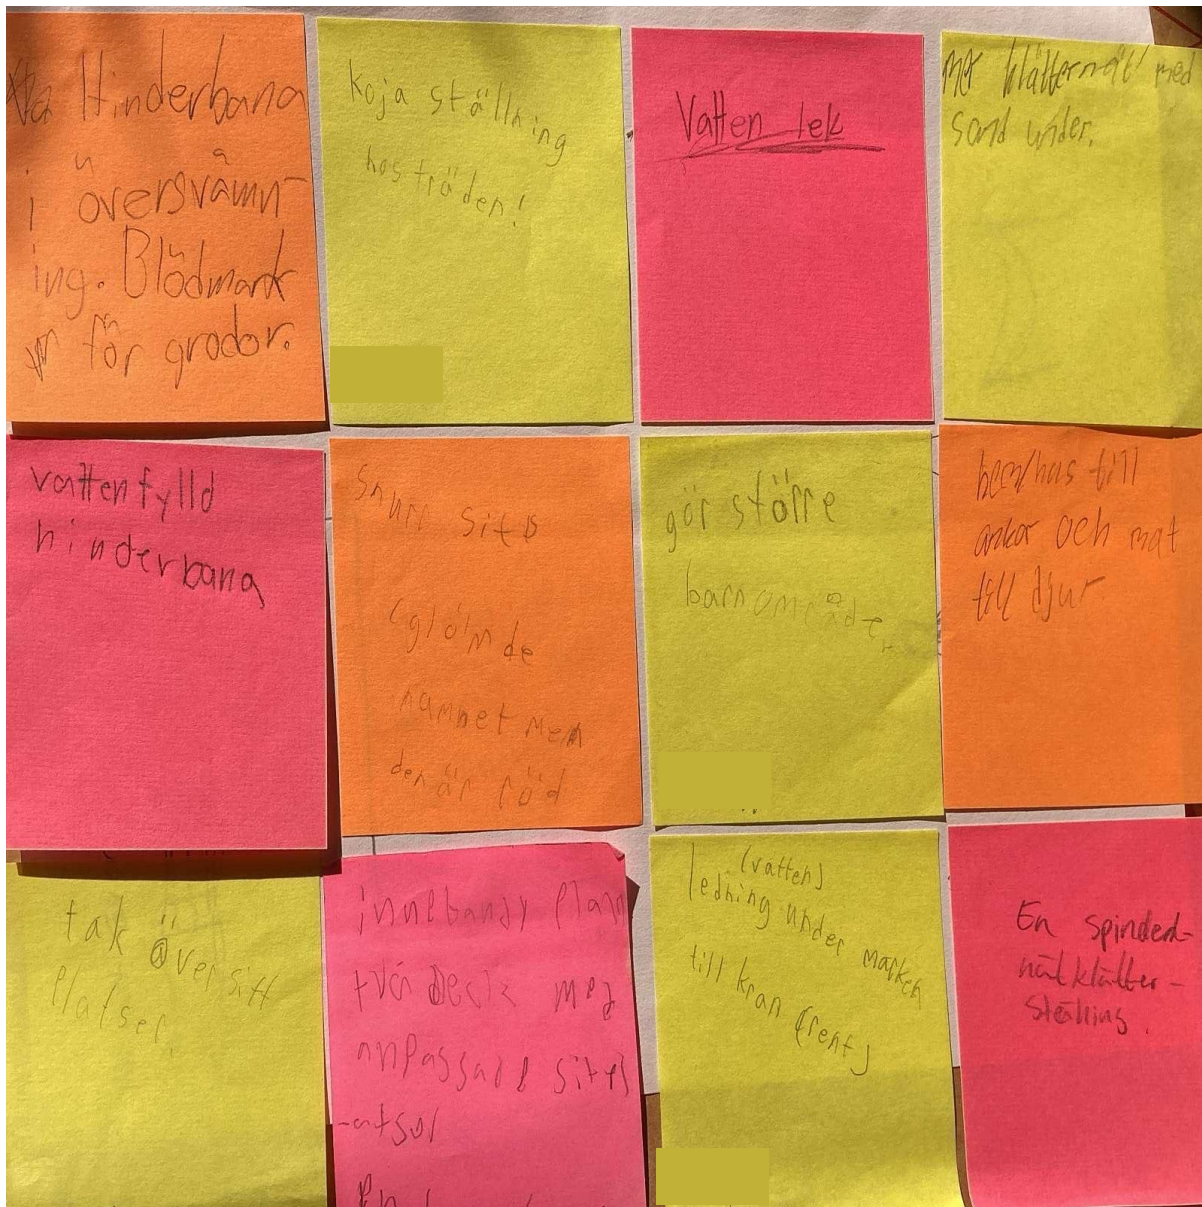 Hinderbana
i översvämn-
ing. Blödmark
för grodor.
koja ställning
hos träden!
Vatten lek
mer klätternät med
sand under.
vattenfylld
hinderbana
Snurr sits
(glömde
namnet men
den är röd
gör större
barnområde
till
ankor och mat
till djur
tak över sitt
platser.
innebandy plan
två Deck med
anpassade
(vatten)
ledning under marken
till kran (rent)
En spindel-
nätklätter-
stälning.